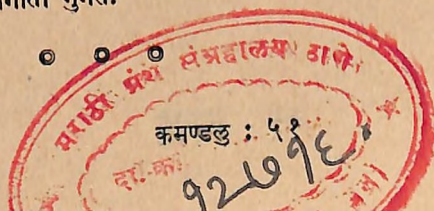 मराठी ग्रंथ संग्रहालय ठाणे.
कमण्डलु : ५१
दा. क्र.
१२७१६.